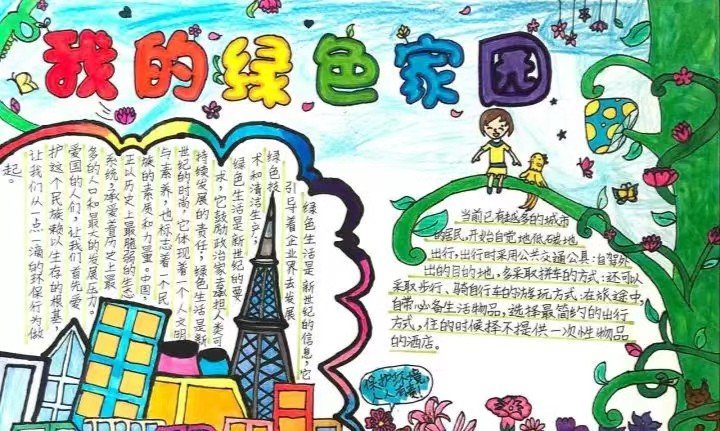 我的绿色家园
绿色生活是新世纪的信息,它
引导着企业界去发展
绿色技
术和清洁生产;
绿色生活是新世纪的要
求,它鼓励政治家去承担人类可
持续发展的责任;绿色生活是新
世纪的时尚,它体现着一个人文明
与素养,也标志着一个民
族的素质和力量。中国,
正以历史上最脆弱的生态
系统,承受着历史上最
多的人口和最大的发展压力。
爱国的人们,让我们首先爱
护这个民族赖以生存的根基,
让我们从一点一滴的环保行为做
起。
当前已有越多的城市
居民,开始自觉地低碳地
出行,出行时采用公共交通公具;自驾外
出的目的地,多采取拼车的方式;还可以
采取步行、骑自行车的游玩方式.在旅途中,
自带必备生活物品,选择最简约的出行
方式,住的时候择不提供一次性物品
的酒店。
保护环境
人人有责!